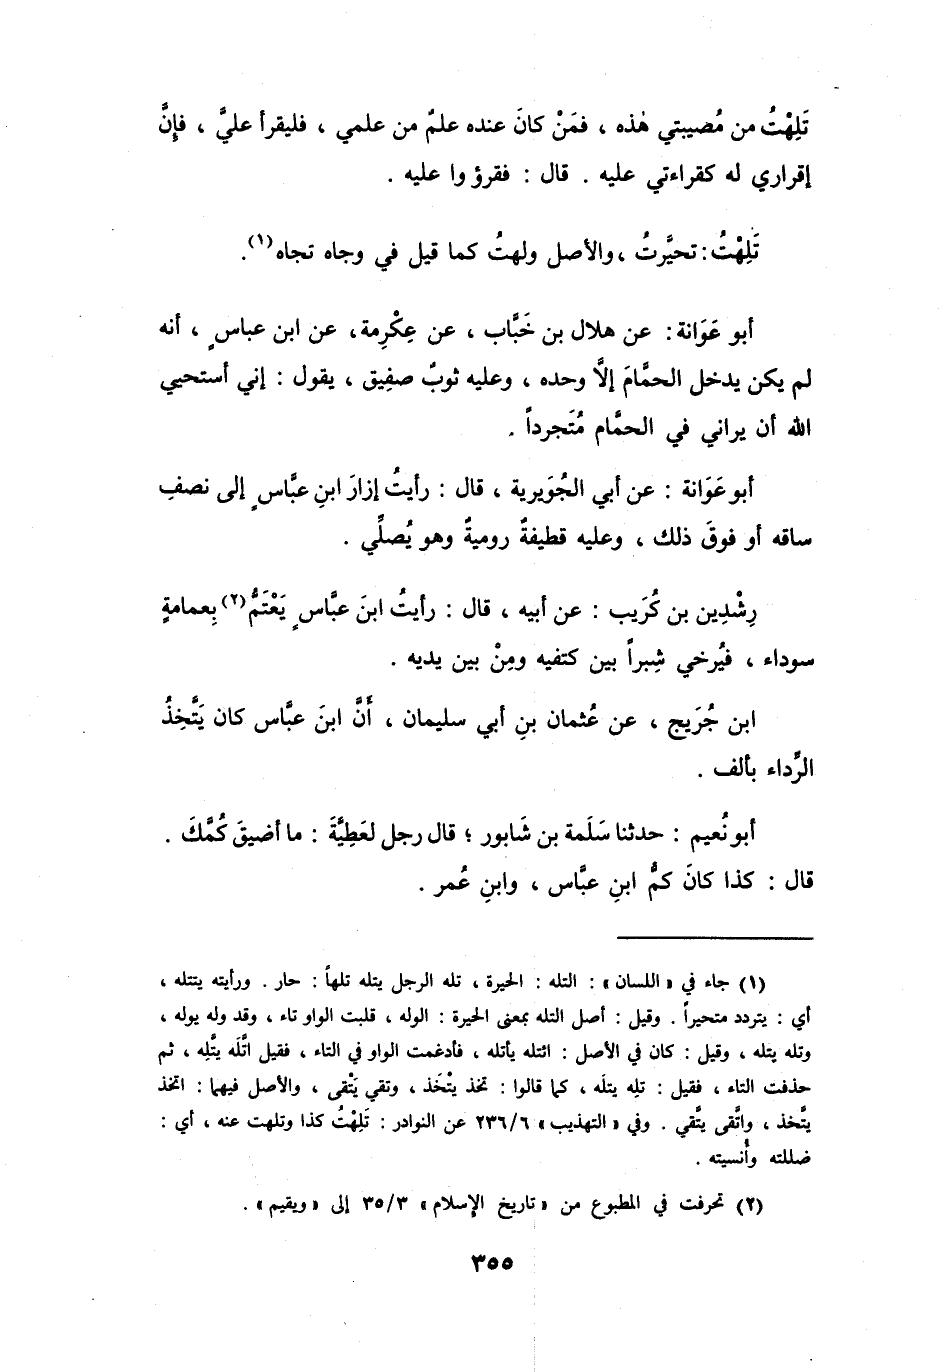 تَلِهْتُ من مُصيبتي هٰذه ، فمَنْ كانَ عنده علمٌ من علمي ، فليقرأ عليَّ ، فإِنَّ
إقراري له كقراءتي عليه . قال : فقرؤوا عليه .
تَلِهْتُ : تحيَّرتُ ، والأصل ولهتُ كما قيل في وجاه تجاه(١) .
أبو عَوَانة : عن هلال بن خَبَّاب ، عن عِكْرِمة ، عن ابن عباسٍ ، أنه
لم يكن يدخل الحمَّامَ إلَّا وحده ، وعليه ثوبٌ صفِيق ، يقول : إني أستحيي
الله أن يراني في الحمَّام مُتَجرداً .
أبو عَوَانة : عن أبي الجُوَيرية ، قال : رأيتُ إزارَ ابنِ عبَّاسٍ إلى نصفِ
ساقه أو فوقَ ذلك ، وعليه قطيفةٌ روميةٌ وهو يُصلِّي .
رِشْدِين بن كُرَيب : عن أبيه ، قال : رأيتُ ابنَ عبَّاسٍ يَعْتَمُّ(٢) بِعمامةٍ
سوداء ، فيُرخي شِبراً بين كتفيه ومِنْ بين يديه .
ابن جُرَيج ، عن عُثمان بنِ أبي سليمان ، أَنَّ ابنَ عبَّاس كان يَتَّخِذُ
الرِّداء بألف .
أبو نُعيم : حدثنا سَلَمة بن شَابور ؛ قال رجل لعَطِيَّةَ : ما أضيقَ كُمَّكَ .
قال : كذا كانَ كمُّ ابنِ عبَّاس ، وابنِ عُمر .
(١) جاء في « اللسان » : التله : الحيرة ، تله الرجل يتله تلهاً : حار . ورأيته يتتله ،
أي : يتردد متحيراً . وقيل : أصل التله بمعنى الحيرة : الوله ، قلبت الواو تاء ، وقد وله يوله ،
وتله يتله ، وقيل : كان في الأصل : ائتله يأتله ، فأدغمت الواو في التاء ، فقيل اتَّلَه يتَّلِه ، ثم
حذفت التاء ، فقيل : تلِه يتلَه ، كما قالوا : تخذ يتْخَذ ، وتقي يَتْقى ، والأصل فيهما : اتخذ
يتَّخذ ، واتَّقى يتَّقي . وفي « التهذيب » ٢٣٦/٦ عن النوادر : تَلِهْتُ كذا وتلهت عنه ، أي :
ضللته وأُنسيته .
(٢) تحرفت في المطبوع من « تاريخ الإسلام » ٣٥/٣ إلى « ويقيم » .
٣٥٥